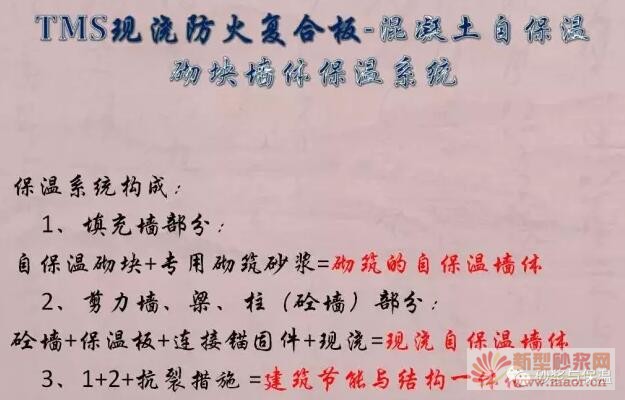 TMS现浇防火复合板-混凝土自保温
砌块墙体保温系统
保温系统构成：
1、填充墙部分：
自保温砌块+专用砌筑砂浆=砌筑的自保温墙体
2、剪力墙、梁、柱（砼墙）部分：
砼墙+保温板+连接锚固件+现浇=现浇自保温墙体
3、1+2+抗裂措施 =建筑节能与结构一体化
新型砂浆网
www.maor.cn